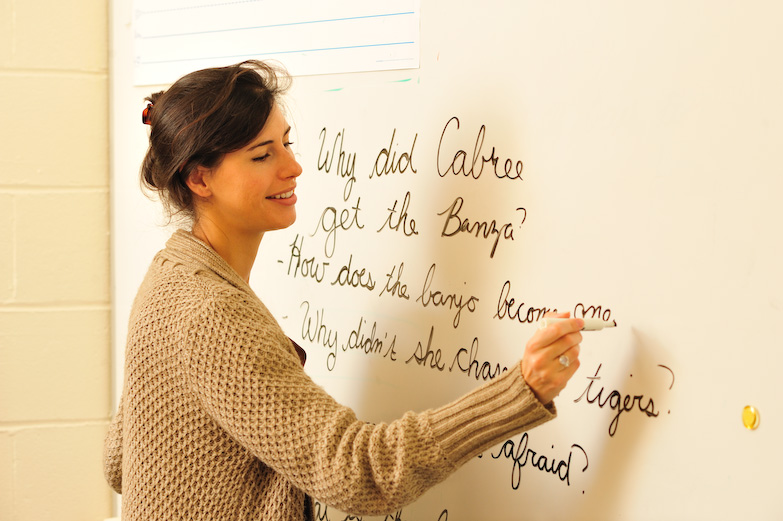 Why did Cabree
get the Banza?
- How does the banjo become me
- Why didn't she tigers?
afraid?